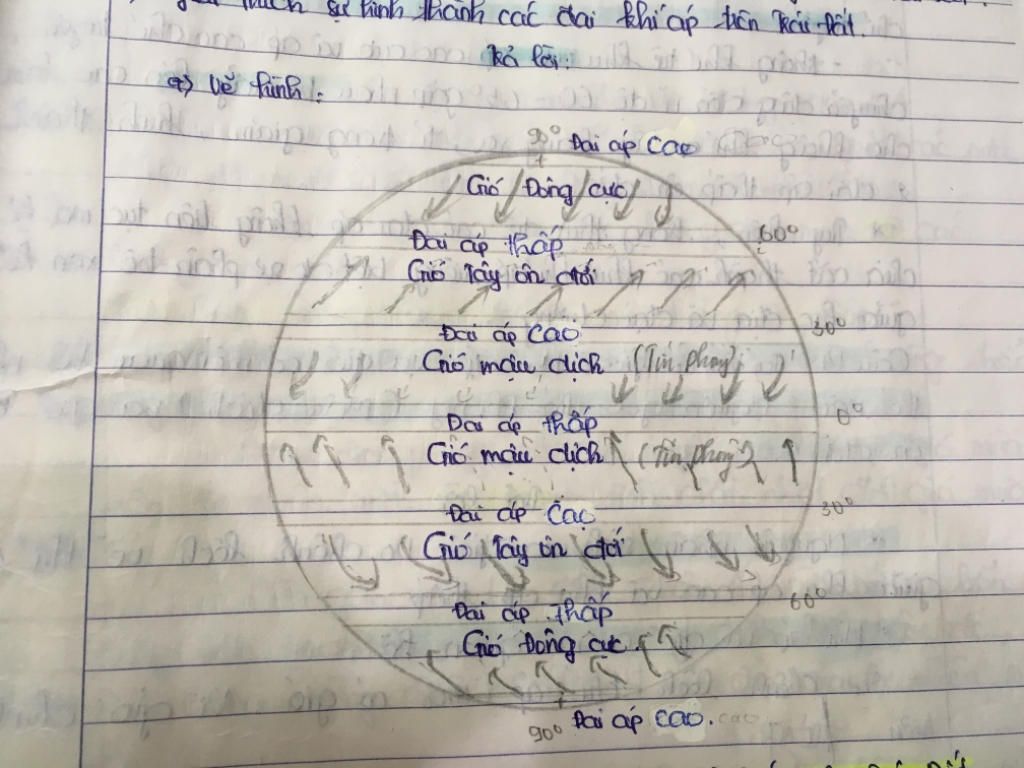 sự hình thành các đai khí áp trên trái đất.
Trả lời:
a) Vẽ hình:
90° Đai áp cao
Gió Đông cực
60°
Đai áp thấp
Gió Tây ôn đới
30°
Đai áp cao
Gió mậu dịch (Tín phong)
0°
Đai áp thấp
Gió mậu dịch (Tín phong)
30°
Đai áp cao
Gió Tây ôn đới
60°
Đai áp thấp
Gió Đông cực
90° Đai áp cao. cao